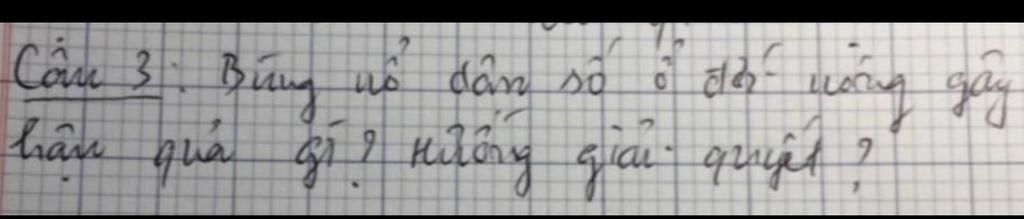 Câu 3: Bùng nổ dân số ở đới nóng gây
hậu quả gì? Hướng giải quyết?